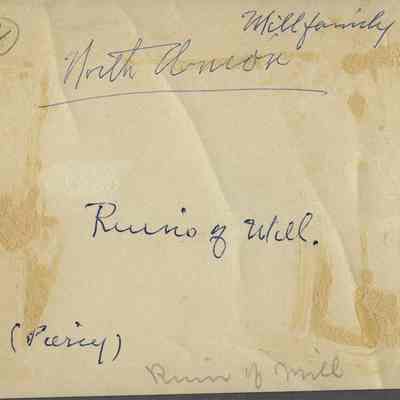 Mill family
North Union
Ruins of Mill.
(Piercy)
Ruin of Mill